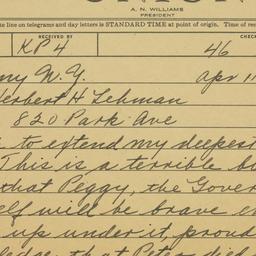 A. N. WILLIAMS
PRESIDENT
te line on telegrams and day letters is STANDARD TIME at point of origin. Time of rec
RECEIVED BY
CHECK
KP4
46
ny N.Y.
Apr 11
Herbert H Lehman
820 Park Ave
to extend my deepest
This is a terrible b
that Peggy, the Gover
elf will be brave e
up under it, proud
ledge that Peter died